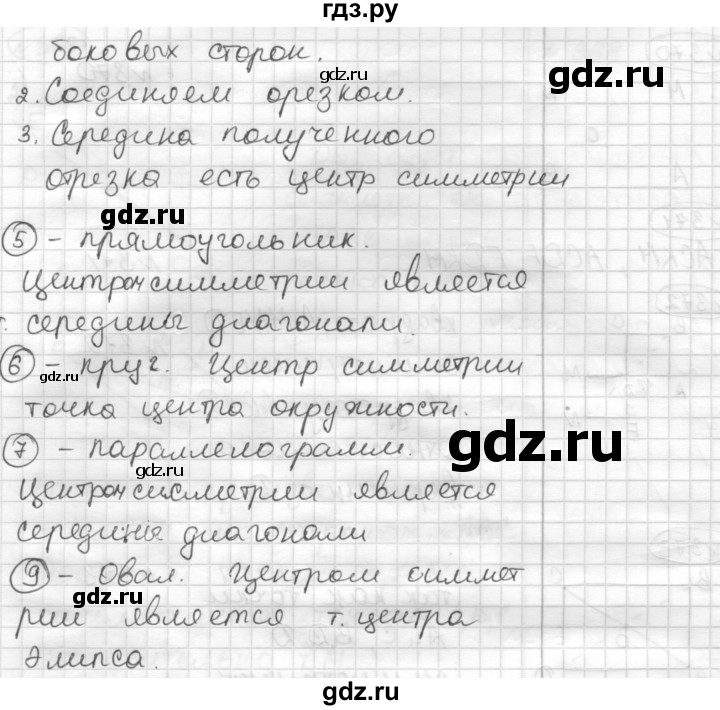 гдз.ру
боковых сторон.
gdz.ru
gdz.ru
2. Соединяем орезком.
3. Середина полученного
отрезка есть центр симметрии
gdz.ru
5 - прямоугольник.
Центром симметрии является
т. середины диагонали.
6 - круг. Центр симметрии
gdz.ru
точка центра окружности.
gdz.ru
7 - параллелограмм.
gdz.ru
Центром симметрии является
середины диагонали
9 - Овал. Центром симмет
gdz.ru
gdz.ru
рии является т. центра
Элипса.
gdz.ru